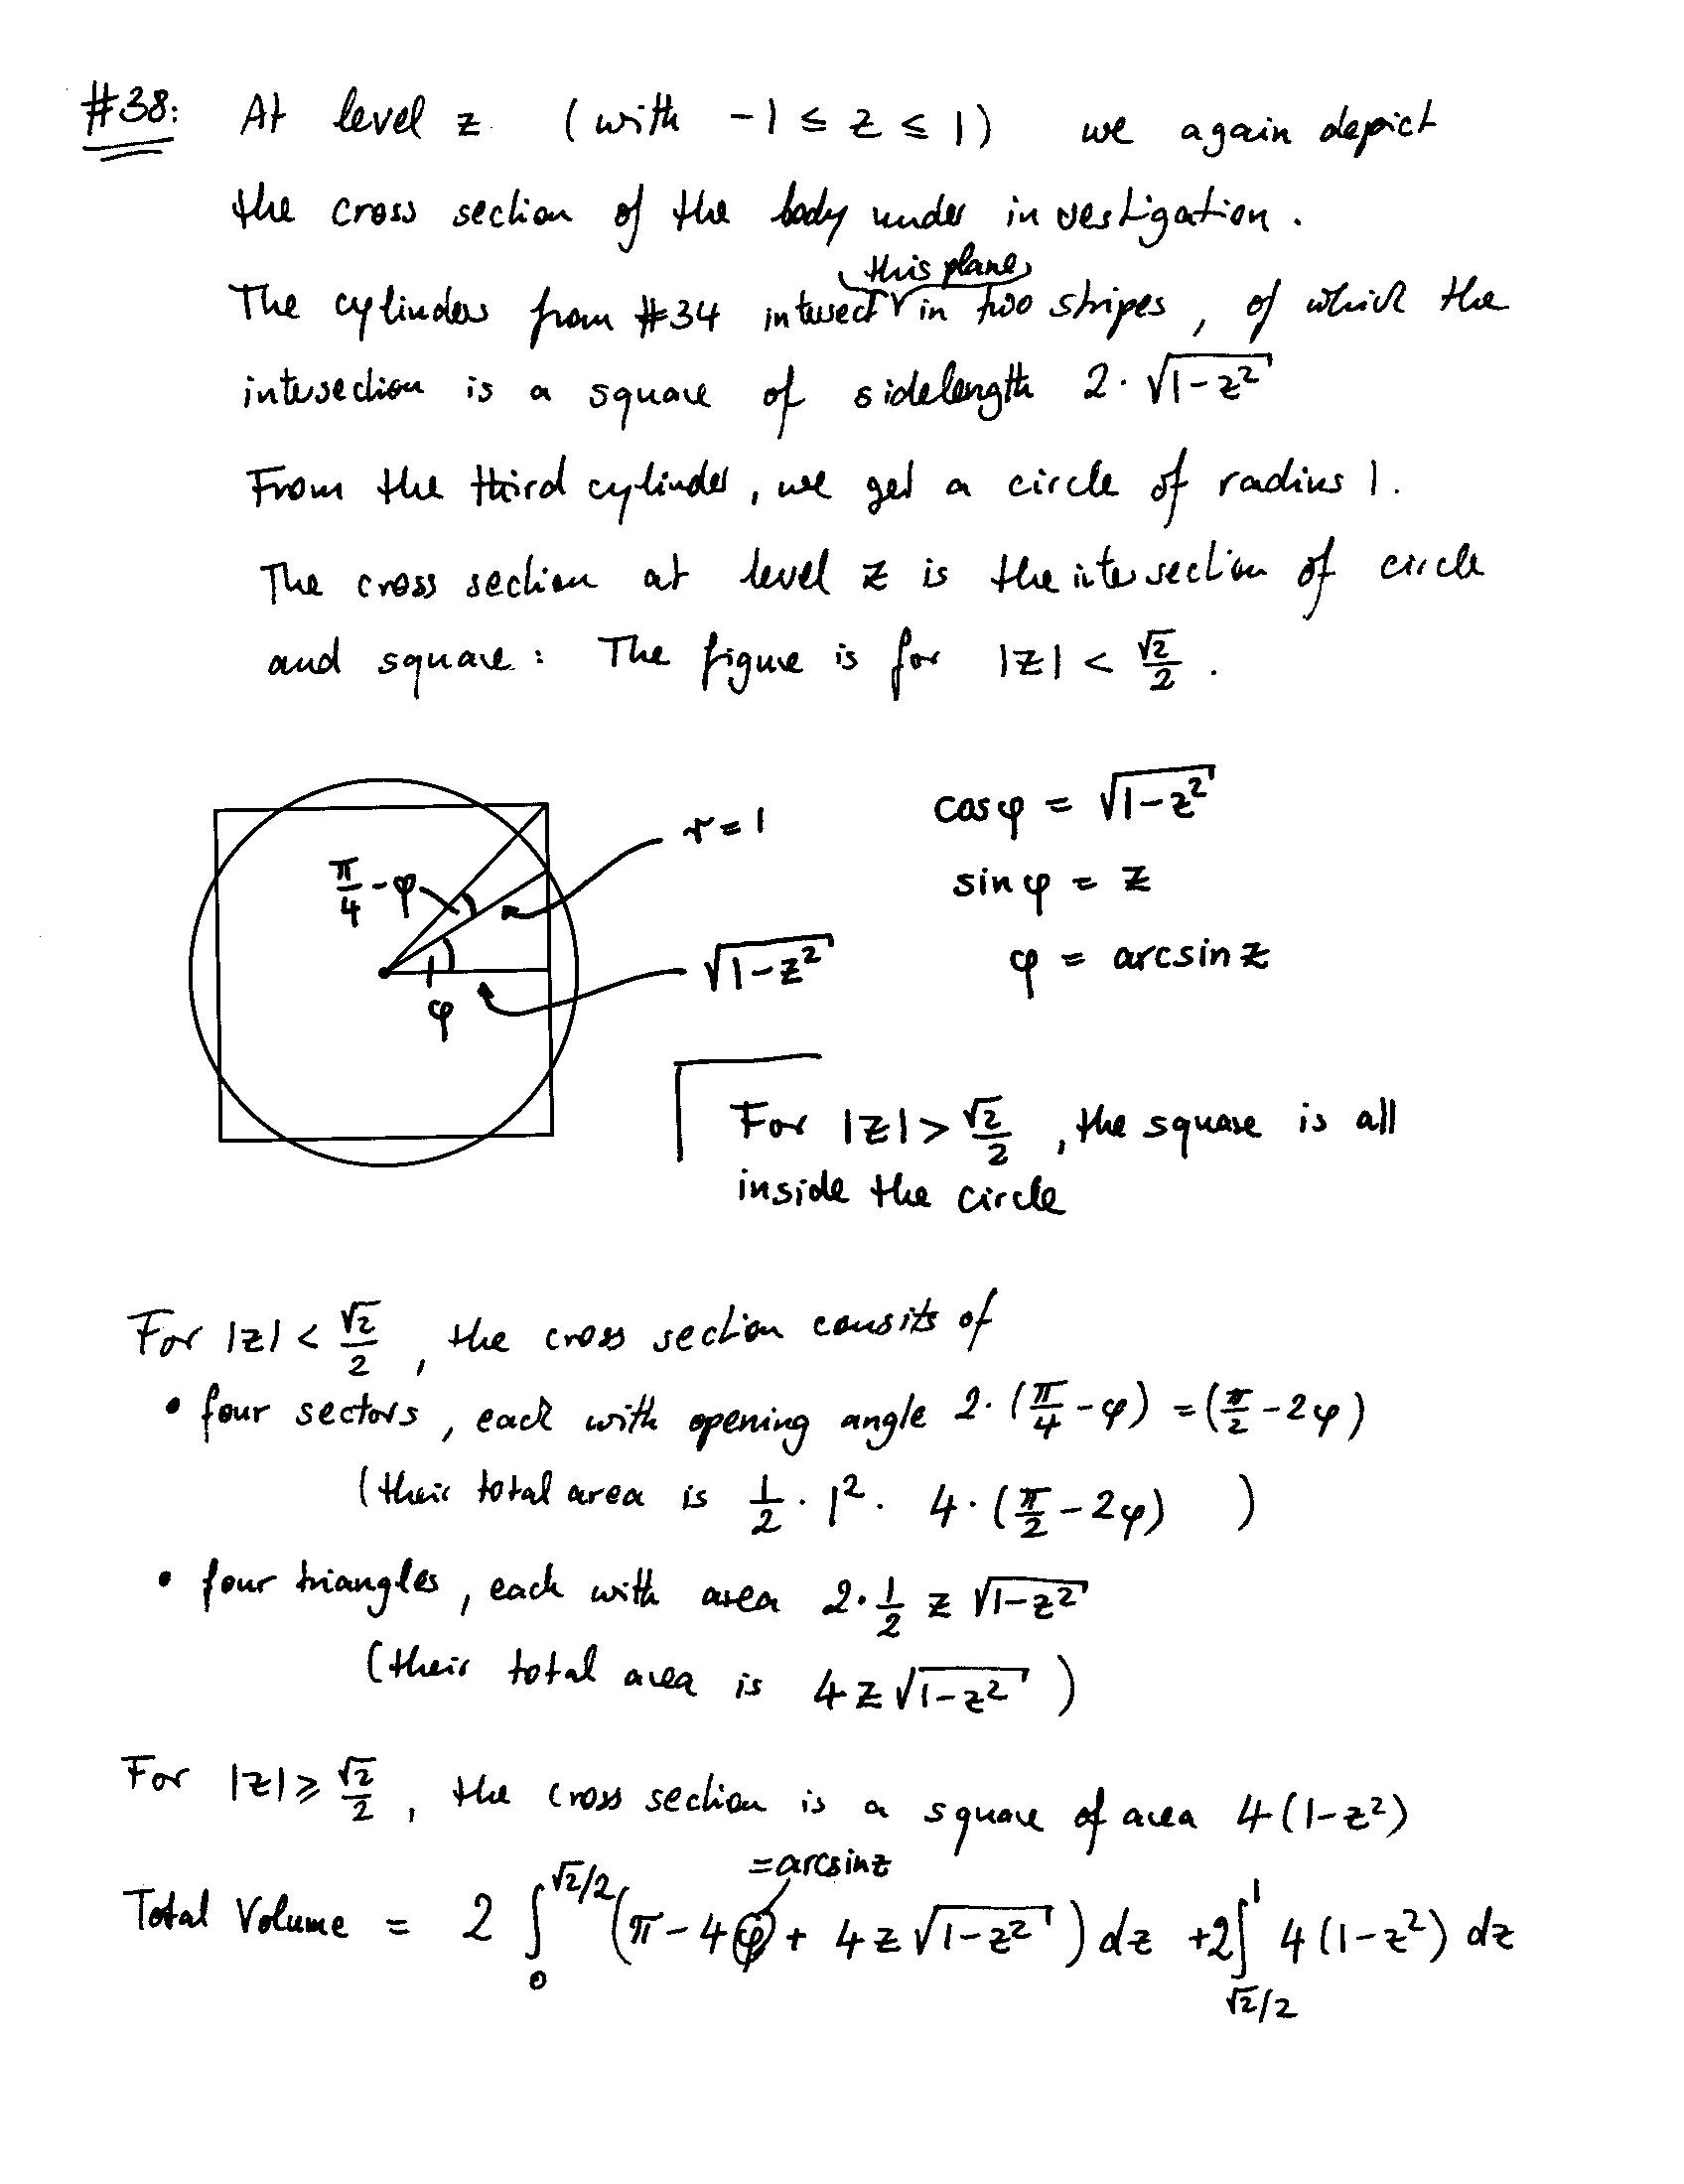 #38: At level z (with -1 ≤ z ≤ 1) we again depict
the cross section of the body under investigation.
this plane
The cylinders from #34 intersect in two stripes, of which the
intersection is a square of sidelength 2·√(1-z²)
From the third cylinder, we get a circle of radius 1.
The cross section at level z is the intersection of circle
and square: The figure is for |z| < √2/2.
r=1
π/4 - φ
√(1-z²)
φ
cosφ = √(1-z²)
sinφ = z
φ = arcsin z
For |z| > √2/2, the square is all
inside the circle
For |z| < √2/2, the cross section consits of
• four sectors, each with opening angle 2·(π/4 - φ) = (π/2 - 2φ)
(their total area is 1/2 · 1² · 4·(π/2 - 2φ) )
• four triangles, each with area 2·1/2 z √(1-z²)
(their total area is 4z√(1-z²) )
For |z| ≥ √2/2, the cross section is a square of area 4(1-z²)
=arcsinz
Total Volume = 2 ∫₀^(√2/2) (π - 4φ + 4z√(1-z²)) dz + 2∫_(√2/2)^1 4(1-z²) dz